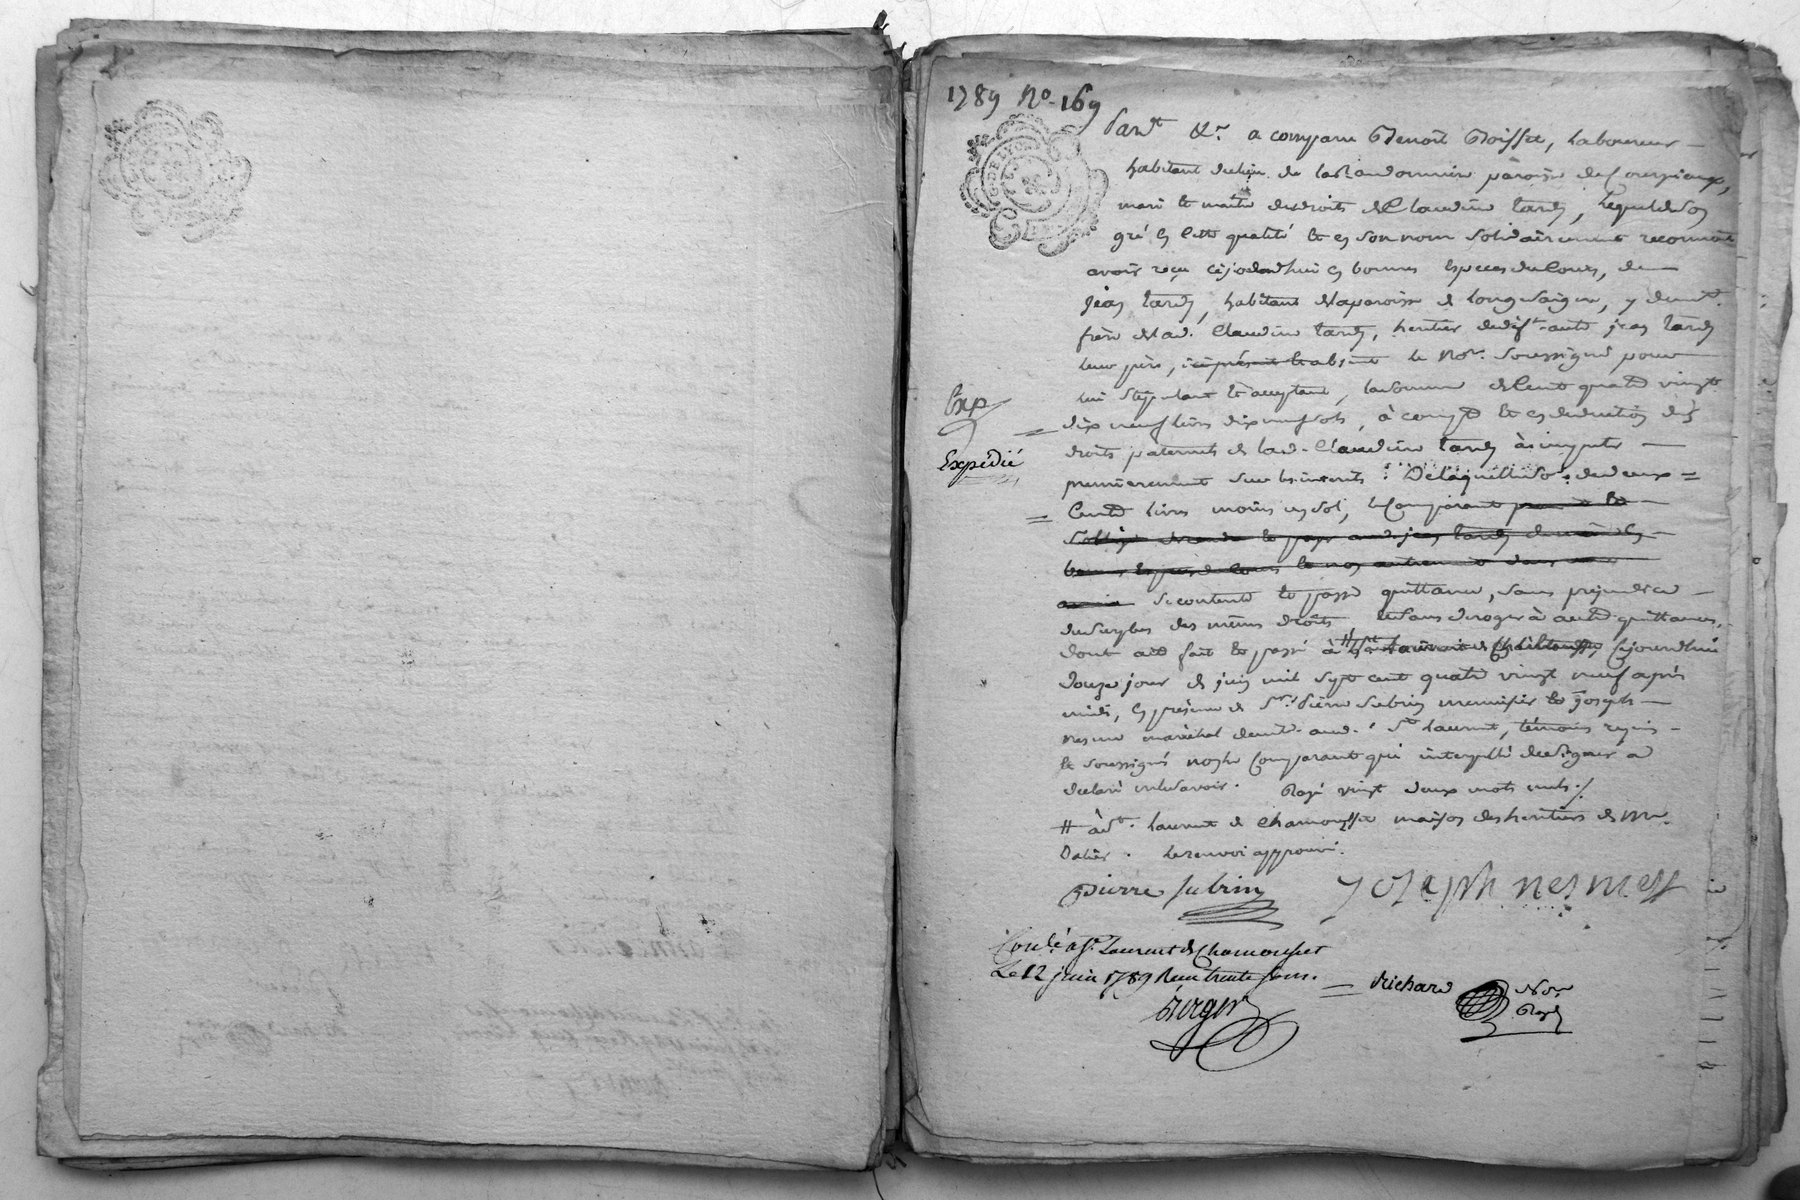 1789 No. 169
Pardt &r. a comparu Benoît Boisset, laboureur
habitant du lieu de paroisse de Courzieux,
mari et maitre des droits de Claudine tardy, lequel de son
gré en cette qualité et en son nom solidairement reconnoit
avoir reçu cejourdhui en bonnes Especes du Cours, de
jean tardy, habitant de la paroisse de Longesaigne, y demt.
frère de lad. Claudine tardy, heritier de deft. autre jean tardy
leur père, le Nore. soussigné pour
lui stipulant et acceptant, la somme de Cent quatre vingt
dix neuf livres dix neuf sols, à compte et en deduction des
droits paternels de lad. Claudine tardy à imputer
premierement sur les interets : De laquelle so. de deux
Cents livres moins un sol, le Comparant
se contente et passe quittance, sans prejudice
du surplus des mêmes droits et sans deroger à autres quittances,
dont acte fait et passé à Cejourdhui
douze jour de juin mil sept cent quatre vingt neuf après
midi, en présence de Srs. Pierre Subrin menuisier et joseph
Nesme maréchal demts. aud. St. Laurent, témoins requis
et soussignés non le Comparant qui interpellé de signer a
declaré ne le savoir. Rayé vingt deux mots nuls ./.
# à St. Laurent de Chamousset maison des heritiers de Mr.
le renvoi approuvé.
Exp
Expédié
pierre subrin
joseph nesmess
Conlé. a St. Laurent de Chamousset
Le 12 juin 1789 Reçu trente sous.
Berger
Richard
Nore
Royal